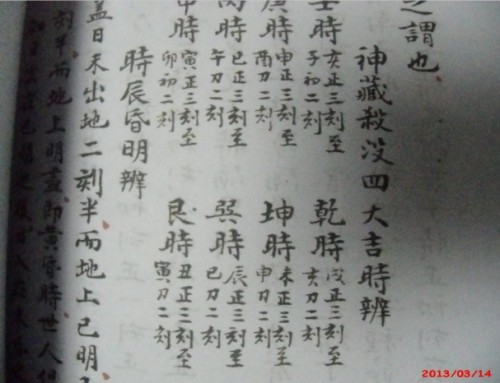 之謂也
神藏殺没四大吉時辨
壬時亥正三刻至子初二刻 乾時戌正三刻至亥刀二刻
庚時申正三刻至酉刀二刻 坤時未正三刻至申刀二刻
丙時巳正三刻至午刀二刻 巽時辰正三刻至巳刀二刻
甲時寅正三刻至卯初二刻 艮時丑正三刻至寅刀二刻
時辰昏明辨
蓋日未出地二刻半而地上已明
刻半而地上明盡即黄昏時世人
2013/03/14